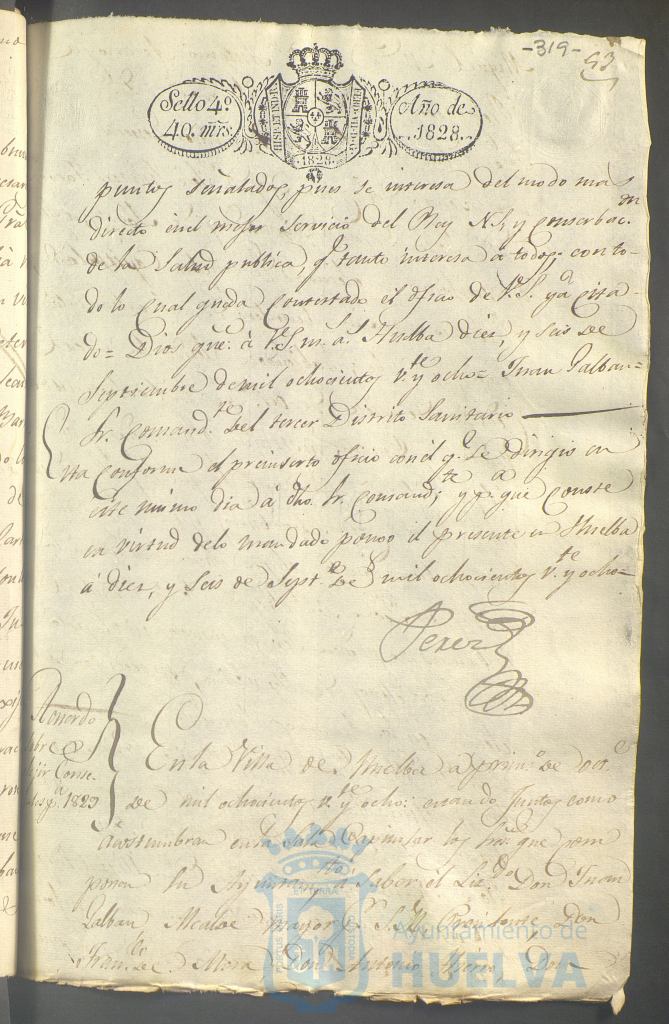 -319-
53
Sello 4º
40. mrs.
Año de
1828.
HISP. ET IND. R.
1828.
puntos señalados, pues se interesa del modo mas
directo en el mejor servicio del Rey N.S. y conserbac.on
de la Salud publica, q.e tanto interesa a todos. con to-
do lo qual queda contestado el oficio de V.S. ya cita-
do= Dios gue. á V.S. m. a.s Huelba diez, y seis de
Septiembre de mil ochocientos v.te y ocho= Juan Galban=
Sr. Comand.te del tercer Distrito Sanitario
Esta conforme el preinserto oficio con el q.e se dirigio en
este mismo dia á dho. Sr. Comand.te y p.a que conste
en virtud de lo mandado pongo el presente en Huelba
á diez, y seis de Sept.e de mil ochocientos v.te y ocho=
Perez
Acuerdo
sobre
elejir Conse-
les p.a 1829
En la Villa de Huelba a prim.o de oct.e
de mil ochocientos v.te y ocho: estando Juntos como
acostumbran en la Sala Capitular los Sres. que com
ponen su Ayuntam.to á Saber el Liz.do Don Juan
Galban Alcalde mayor por S.M. Don
Fran.co de Mora Don Antonio Don
Ayuntamiento de
HUELVA